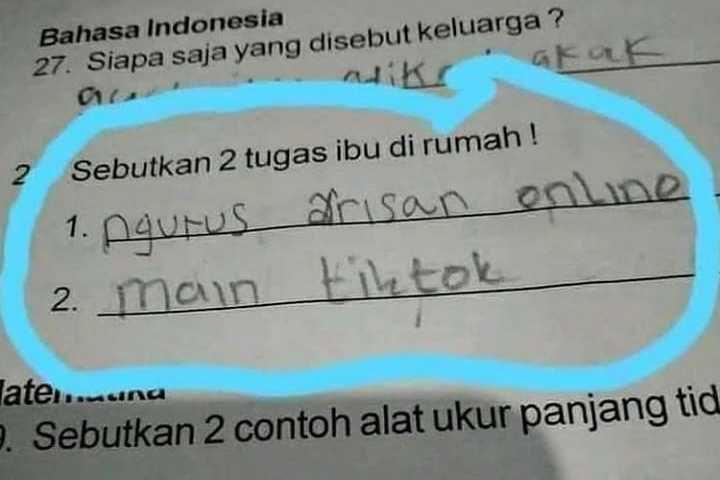 Bahasa Indonesia
27. Siapa saja yang disebut keluarga ?
adik akak
2 Sebutkan 2 tugas ibu di rumah !
1. ngurus arisan online
2. main tiktok
. Sebutkan 2 contoh alat ukur panjang tid